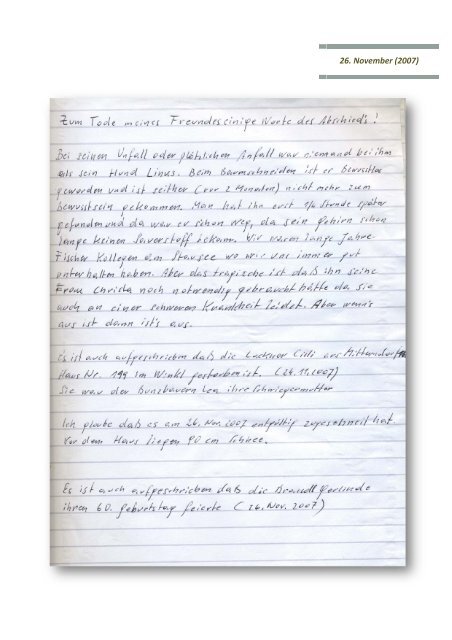 26. November (2007)
Zum Tode meines Freundes einige Worte des Abschied's!
Bei seinen Unfall oder plötzlichen Anfall war niemand bei ihm
als sein Hund Linus. Beim Baumschneiden ist er bewustlos
geworden und ist seither (vor 2 Monaten) nicht mehr zum
bewustsein gekommen. Man hat ihn erst 1/4 Stunde später
gefunden und da war er schon weg, da sein gehirn schon
lange keinen Sauerstoff bekam. Wir waren lange Jahre
Fischer Kollegen am Stausee wo wir uns immer gut
unterhalten haben. Aber das tragische ist daß ihn seine
Frau Christa noch notwendig gebraucht hätte da sie
auch an einer schweren Krankheit leidet. Aber wenn's
aus ist dann ist's aus.
Es ist auch aufgeschrieben daß die Lackner Cilli aus Mitterndorf
Haus Nr. 199 im Winkl gestorben ist. (24.11.2007)
Sie war der Schwiegermutter
Ich glaube daß es am 26. Nov. 2007 entgültig zugeschneit hat.
Vor dem Haus liegen 90 cm Schnee.
Es ist auch aufgeschrieben daß die Brandl Gerlinde
ihren 60. Geburtstag feierte (26. Nov. 2007)